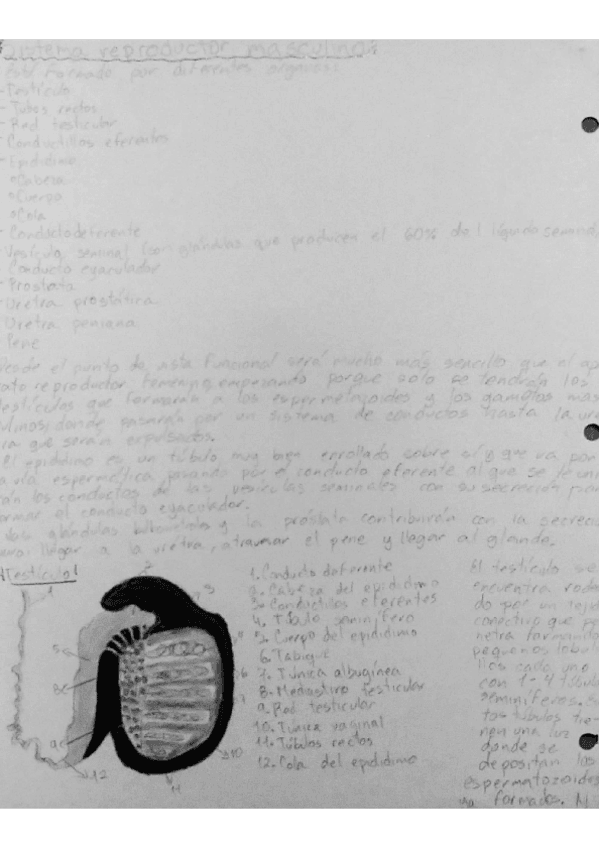 Sistema reproductor masculino:
Está formado por diferentes órganos:
-Testículo
-Tubos rectos
-Red testicular
-Conductillos eferentes
-Epidídimo
°Cabeza
°Cuerpo
°Cola
-Conducto deferente
Vesícula seminal (son glándulas que producen el 60% del líquido seminal
Conducto eyaculador
-Prostata
-Uretra prostática
Uretra peniana
Pene
Desde el punto de vista funcional será mucho más sencillo que el apa
rato reproductor femenino, empezando porque solo se tendrán los
testículos que formarán a los espermatozoides y los gametos mas
culinos, donde pasarán por un sistema de conductos hasta la ure
tra que serán expulsados.
El epidídimo es un túbulo muy bien enrollado sobre sí y que va por
la vía espermática, pasando por el conducto eferente al que se le uni
rán los conductos de las vesículas seminales con su secreción para
formar el conducto eyaculador.
glándulas y la próstata contribuirán con la secreció
para llegar a la uretra, atravesar el pene y llegar al glande.
Testículo
1
3
5
6
7
8
9
10
11
12
1. Conducto deferente
2. Cabeza del epididimo
3. Conductillos eferentes
4. Túbulo seminífero
5. Cuerpo del epididimo
6. Tabique
7. Túnica albugínea
8. Mediastino testicular
9. Red testicular
10. Túnica vaginal
11. Túbulos rectos
12. Cola del epididimo
El testículo se
encuentra rodea
do por un tejido
conectivo que pe
netra formando
pequeños lobuli
llos cada uno
con 1-4 túbulos
seminíferos. Es
tos túbulos tie
nen una luz
donde se
depositan los
espermatozoides
ya formados.